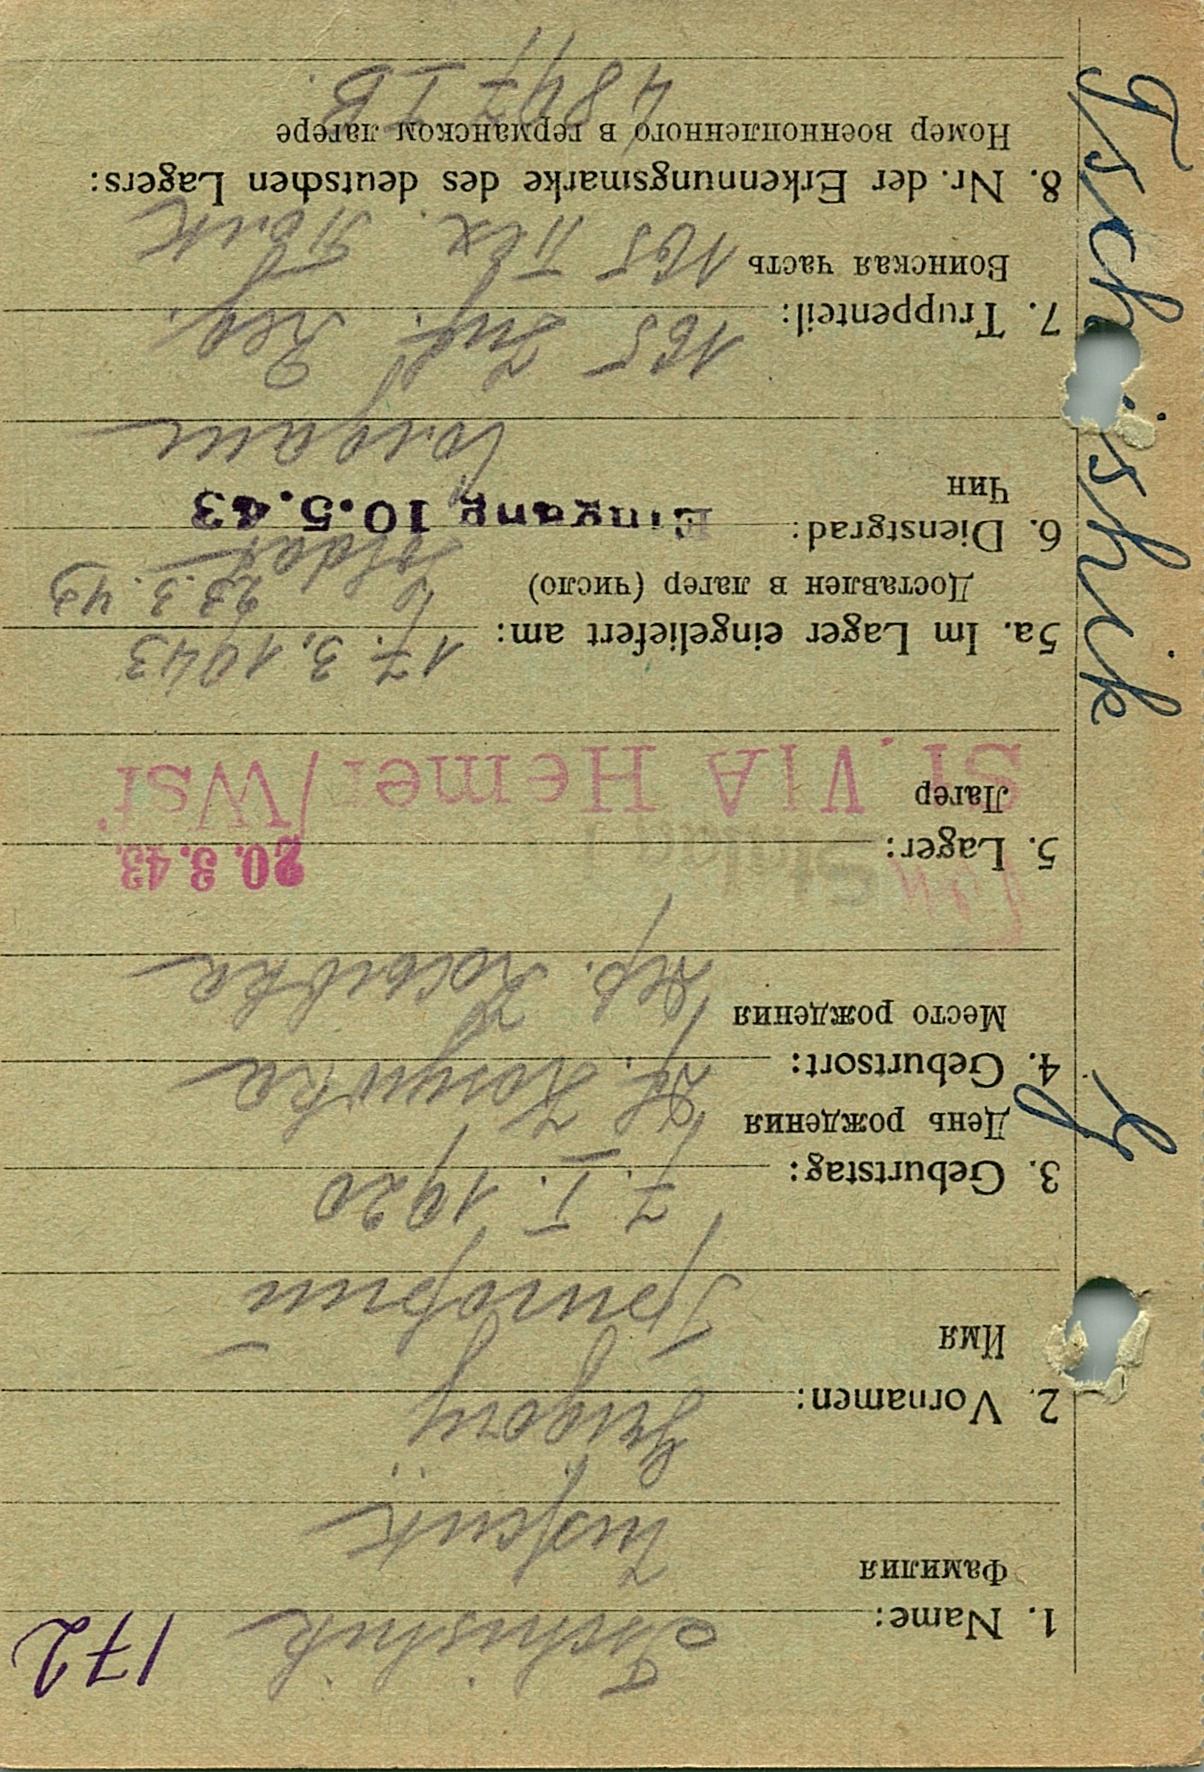 172
Tschishik
1. Name: Tschishik
Фамилия Чижик
2. Vornamen: Grigorij
Имя Григорий
3. Geburtstag: 7. I. 1920
День рождения
4. Geburtsort:
Место рождения дер.
5. Lager: 20. 3. 43.
Лагер St. VI A Hemer/Wsf
5a. Im Lager eingeliefert am: 17. 3. 1943
Доставлен в лагер (число) 23. 3. 43
6. Dienstgrad: Soldat
Eingang 10.5.43
Чин Солдат
7. Truppenteil: 165 Inf. Reg.
Воинская часть 165 полк
8. Nr. der Erkennungsmarke des deutschen Lagers:
Номер военнопленного в германском лагере
4847 I B.
Tschishik
G